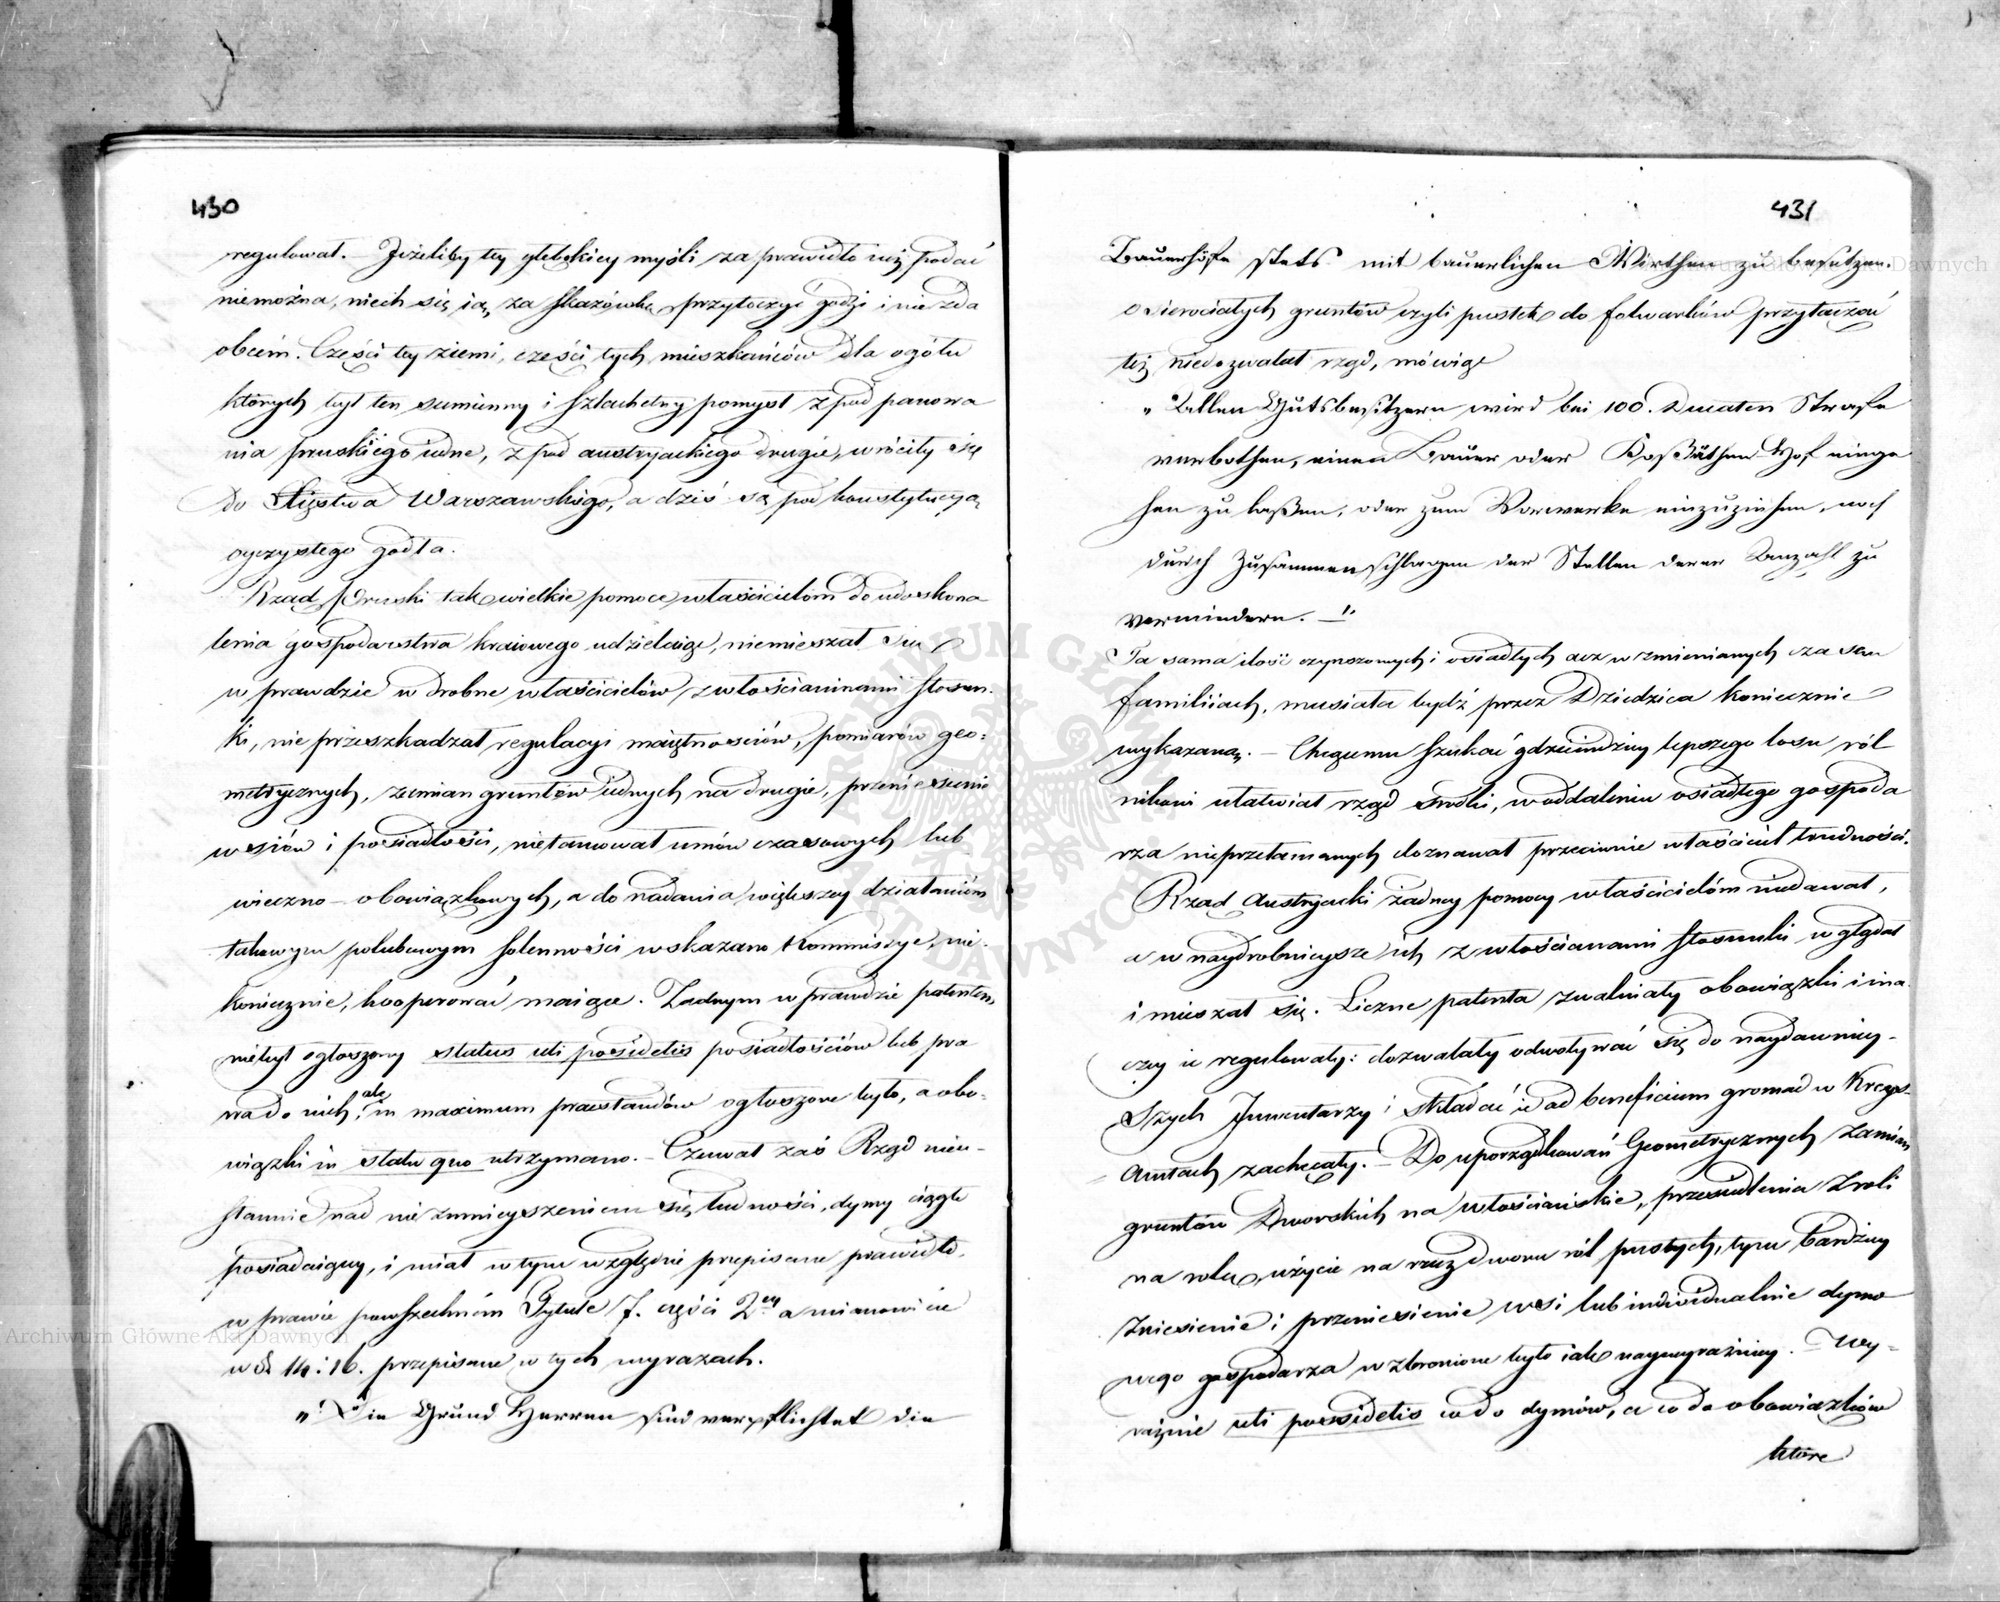 430
regulował. – Jeżeliby tey głębokiey myśli za prawidło iuż podać
niemożna, niech się ią za skazówkę przytoczyć godzi i nie zda
obcém. Części tey ziemi, części tych mieszkańców dla ogółu
których był ten sumienny i szlachetny pomysł z pod panowa
nia pruskiego iedne, z pod austryackiego drugie, wróciły się
do Xięstwa Warszawskiego, a dziś są pod konstytucyą
oyczystego godła.
Rząd Pruski tak wielkie pomoce właścicielom do udoskona
lenia gospodarstwa kraiowego udzielaiąc, niemieszał się
w prawdzie w drobne właścicielów z włościaninami stosun-
ki, nie przeszkadzał regulacyi maiętnościów, pomiarów geo-
metrycznych, zamian gruntów iednych na drugie, przeniesienie
wsiów i posiadłości, nietamował umów czasowych lub
wieczno-obowiązkowych, a do nadania większey działaniom
takowym polubowym solenności wskazano Kommissye, nie-
koniecznie kooperować maiące. Żadnym w prawdzie patentem
niebył ogłoszony status uti possidetis posiadłościów lub pra
wa do nich, ale in maximum praestandów ogłoszone było, a obo-
wiązki in statu quo utrzymano. – Czuwał zaś Rząd nieu-
stannie nad nie zmnieyszeniem się ludności, dymy ciągle
posiadaiącey, i miał w tym względzie przepisane prawidło,
w prawie powszechném Tytule 7. części 2ey a mianowicie
w §§ 14 i 16. przepisane w tych wyrazach.
„Die Grund Herren sind verpflichtet die
431
Bauerhöfe stets mit bäuerlichen Wirthen zu besetzen.
Osierociałych gruntów czyli pustek do folwarków przyłączać
też niedozwalał rząd, mówiąc
„Allen Gutsbesitzern wird bei 100. Ducaten Strafe
verbothen, einen Bauer oder Koßäthen Hof einge
hen zu laßen, oder zum Vorwerke einzuziehen, noch
durch Zusammenschlagen der Stellen deren Anzahl zu
vermindern. –"
Ta sama ilość czynszowych i osiadłych acz w zmienianych czasem
familiiach, musiała bydź przez Dziedzica koniecznie
wykazaną. – Chcącemu szukać gdzieindziey lepszego losu rol
nikowi ułatwiał rząd środki, w oddaleniu osiadłego gospoda
rza nieprzełamanych doznawał przeciwnie właściciel trudności.
Rząd Austryacki żadney pomocy właścicielóm niedawał,
a w naydrobnieysze ich z włościanami stosunki wglądał
i mieszał się. Liczne patenta zwalniały obowiązki i ina-
czey ie regulowały: dozwalały odwoływać się do naydawniey-
szych Inwentarzy i składać ie ad beneficium gromad w Kreys-
Amtach zachęcały. – Do uporządkowań Geometrycznych zamian
gruntów Dworskich na włościańskie, przesiedlenia z roli
na rolę, użycie na rzecz dworu ról pustych, tym bardziey
zniesienie i przeniesienie wsi lub individualnie dymo
wego gospodarza wzbronione było iak naywyraźniey. – Wy-
raźnie uti possidetis co do dymów, a co do obowiązków
które